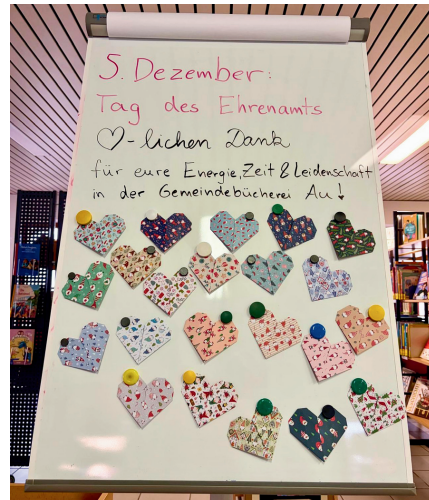 5. Dezember:
Tag des Ehrenamts
♡-lichen Dank
für eure Energie, Zeit & Leidenschaft
in der Gemeindebücherei Au!